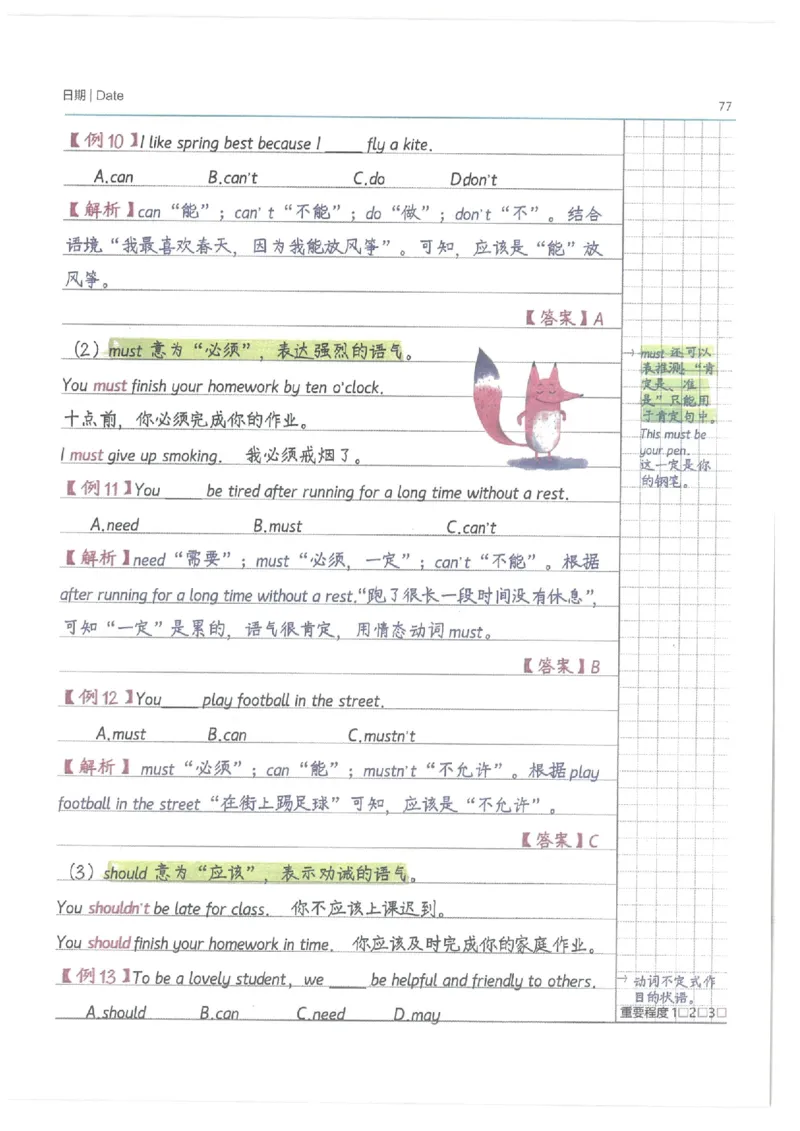 日期 | Date
77
【例10】I like spring best because I ____ fly a kite.
A.can B.can't C.do D.don't
【解析】can“能”；can't“不能”；do“做”；don't“不”。结合
语境“我最喜欢春天，因为我能放风筝”。可知，应该是“能”放
风筝。
【答案】A
（2）must 意为“必须”，表达强烈的语气。
You must finish your homework by ten o'clock.
十点前，你必须完成你的作业。
I must give up smoking. 我必须戒烟了。
【例11】You ____ be tired after running for a long time without a rest.
A.need B.must C.can't
【解析】need“需要”；must“必须，一定”；can't“不能”。根据
after running for a long time without a rest.“跑了很长一段时间没有休息”，
可知“一定”是累的，语气很肯定，用情态动词 must。
【答案】B
【例12】You____ play football in the street.
A.must B.can C.mustn't
【解析】must“必须”；can“能”；mustn't“不允许”。根据play
football in the street“在街上踢足球”可知，应该是“不允许”。
【答案】C
（3）should 意为“应该”，表示劝诫的语气。
You shouldn't be late for class. 你不应该上课迟到。
You should finish your homework in time. 你应该及时完成你的家庭作业。
【例13】To be a lovely student, we ____ be helpful and friendly to others.
A.should B.can C.need D.may
→ must 还可以
表推测，“肯
定是、准
是”只能用
于肯定句中。
This must be
your pen.
这一定是你
的钢笔。
→ 动词不定式作
目的状语。
重要程度 1□2□3□